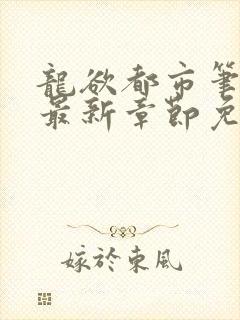 龍欲都市筆
最新章節免
嫁於東風